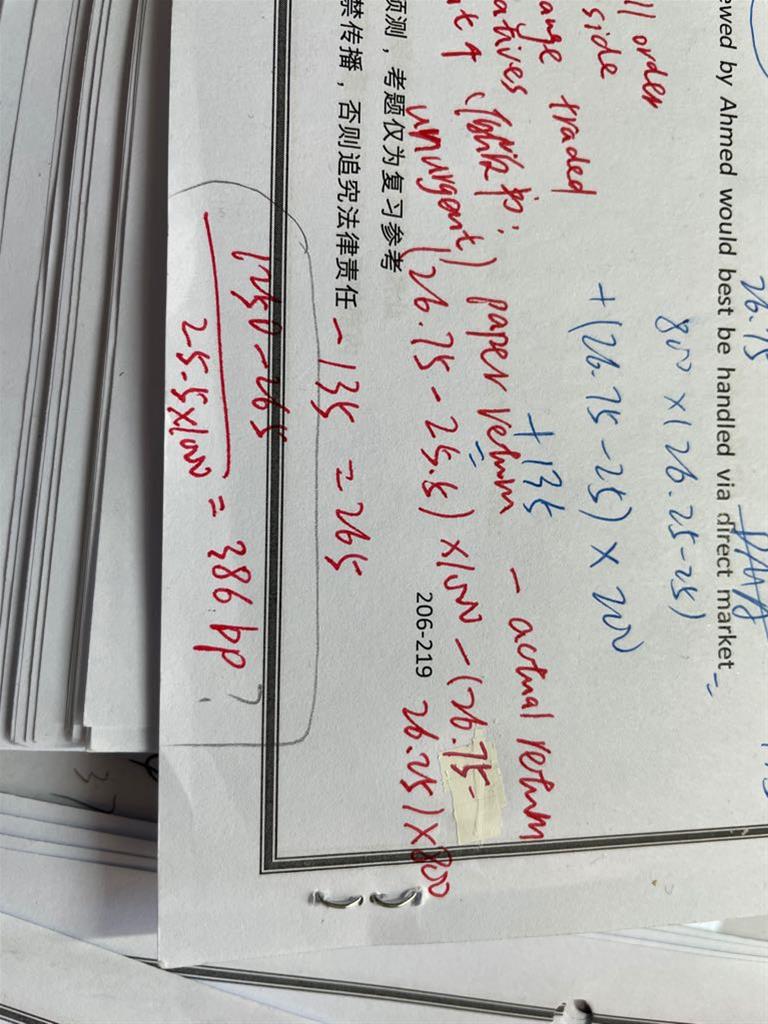 26.75
ewed by Ahmed would best be handled via direct market
DMA
800 × (26.25-25)
+(26.75-25) × 200
+135
ll order
side
ange traded
atives
unurgent)
paper return - actual return
(26.75-25.5) × 1000 - (26.75-
26.25) × 800
206-219
预测，考题仅为复习参考
禁传播，否则追究法律责任
-135 = 265
1250-265
25.5×1000
= 386 bp?